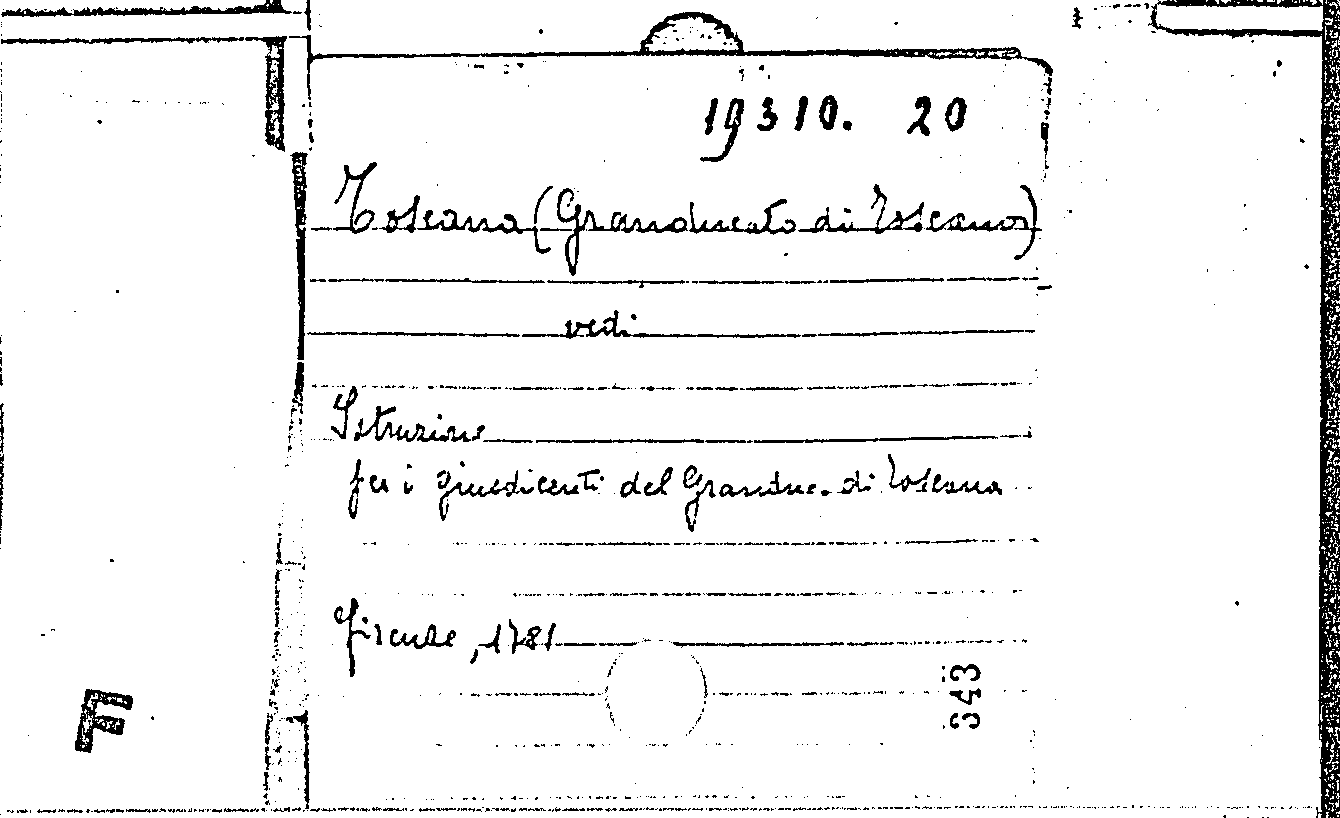 19310. 20
Toscana (Granducato di Toscana)
vedi
Istruzione
per i giusdicenti del Granduc. di Toscana
Firenze, 1781
343
F